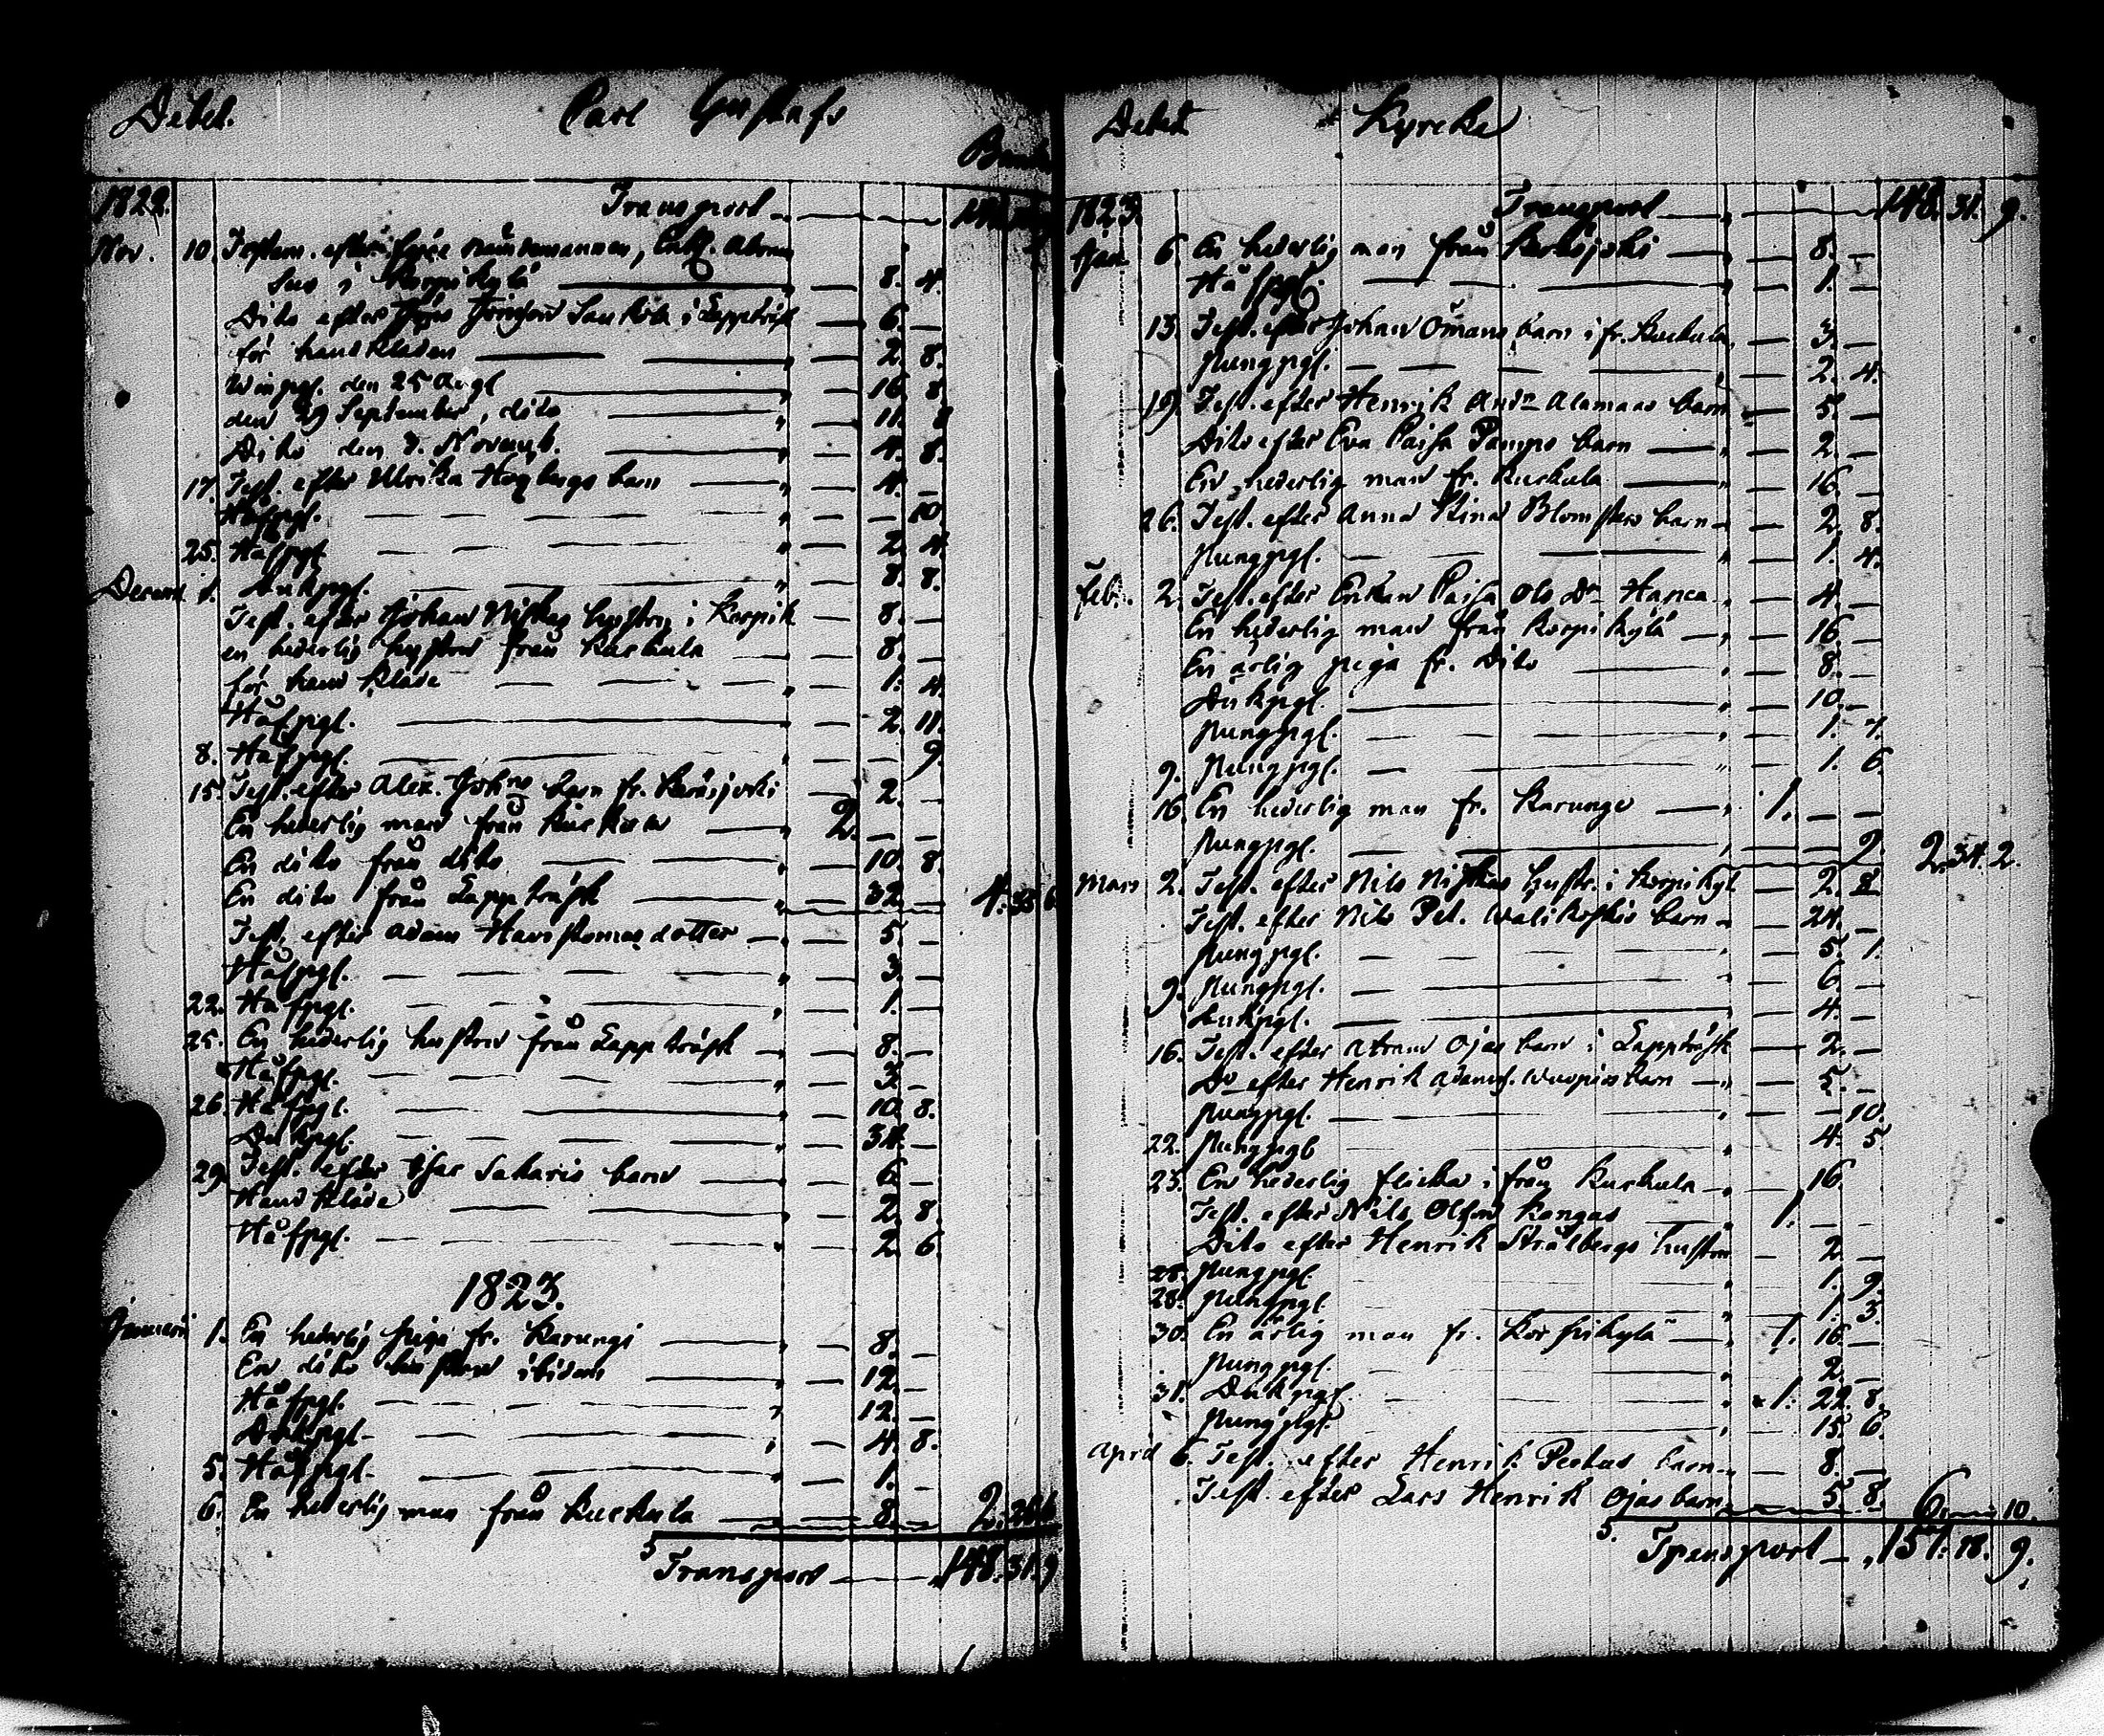 Debet. Carl Gustafs
Banco
1822. Transport
Nov. 10. Testam. efter förre nämndemannen, Abram
i Korpikylä 8. 4.
Dito efter i Lappträsk 6. —
för handkläden 2. 8.
Winpgl. den 25 Augl 16. 8.
den 29 September, dito 11. 8
Dito den 3. Novemb. 4. 8.
17. Test. efter Ulrika Hogbergs barn 4. —
Håfpgl. — 10.
25. Håfpgl. 2. 4.
Decem 1. Dukpgl. 8. 8.
Test. efter Johan Niskas hustru i Korpik 8. —
en hederlig hustru från Kuckula 8. —
för hand kläde 1. 4.
Håfpgl. 2. 11.
8. Håfpgl. — 9.
15. Test. efter Alex. Johns barn fr. Karsjocki 2. —
En hederlig man från 2. — —
En dito från dito 10. 8.
En dito från Lappträsk 32. — 4. 33. 6.
Test. efter Adam dotter 5. —
Håfpgl. 3. —
22. Håfpgl. 1. —
25. En hederlig hustru från Lappträsk 8. —
Håfpgl. 3. —
26. Håfpgl. 10. 8.
Dukpgl. 34. —
29. Test. efter Isac Sakaris barn 6. —
Hand kläde 2. 8.
Håfpgl. 2. 6.
1823.
Januari 1. En hederlig piga fr. Karungi 8. —
En dito hustru ibidem 12. —
Håfpgl. 12. —
Dukpgl. 4. 8.
5. Håfpgl. 1. —
6. En hederlig man från Kuckula 8. — 2.
5 Transport 148. 31. 9
Debet Kyrcka
1823. Transport 148. 31. 9.
Jan 6. En hederlig man från Karsjocki 8. —
Håfpgl. 1. —
13. Test. efter Johan Ömans barn i fr. Kuckula 3. —
Pungpgl. 2. 4.
19. Test. efter Henrik Andn Alamaas barn 5. —
Dito efter Eva Caisa Pamps barn 2. —
En hederlig man fr. Kuckula 16. —
26. Test. efter Anna Stina Blomsters barn 2. 8.
Pungpgl. 1. 4.
Feb. 2. Test. efter Enkan Caisa Ols Dr Hanca 4. —
En hederlig man från Korpikylä 16. —
En ärlig piga fr. Dito 8. —
Dukpgl. 10. —
Pungpgl. 1. 7.
9. Pungpgl. 1. 6.
16. En hederlig man fr. Karunge 1. — —
Pungpgl. — 9. 2. 34. 2.
Mars 2. Test. efter Nils Niskas hustr. i Korpikyl 2. 8
Test. efter Nils Pet. Walikoskis barn 24. —
Pungpgl. 5. 1.
9. Pungpgl. 6. —
Dukpgl. 4. —
16. Test. efter Abram Ojas barn i Lappträsk 2. —
Do efter Henrik Adamss. barn 5. —
Pungpgl. — 10.
22. Pungpgl 4. 5
23. En hederlig flicka ifrån Kuckula 16.
Test. efter Nils Olsson Kangas 1. — —
Dito efter Henrik Strålbergs hustru 2. —
25. Pungpgl. 1. 9.
28. Pungpgl. 1. 3.
30. En ärlig man fr. Korpikylä 1. 16. —
Pungpgl. 2. —
31. Dukpgl. 1. 22. 8.
Pungpgl. 15. 6.
April 6. Test. efter Henrik Peckas barn 8. —
Test. efter Lars Henrik Ojas barn 5. 8. 6. — 10.
5. Transport 157. 18. 9.